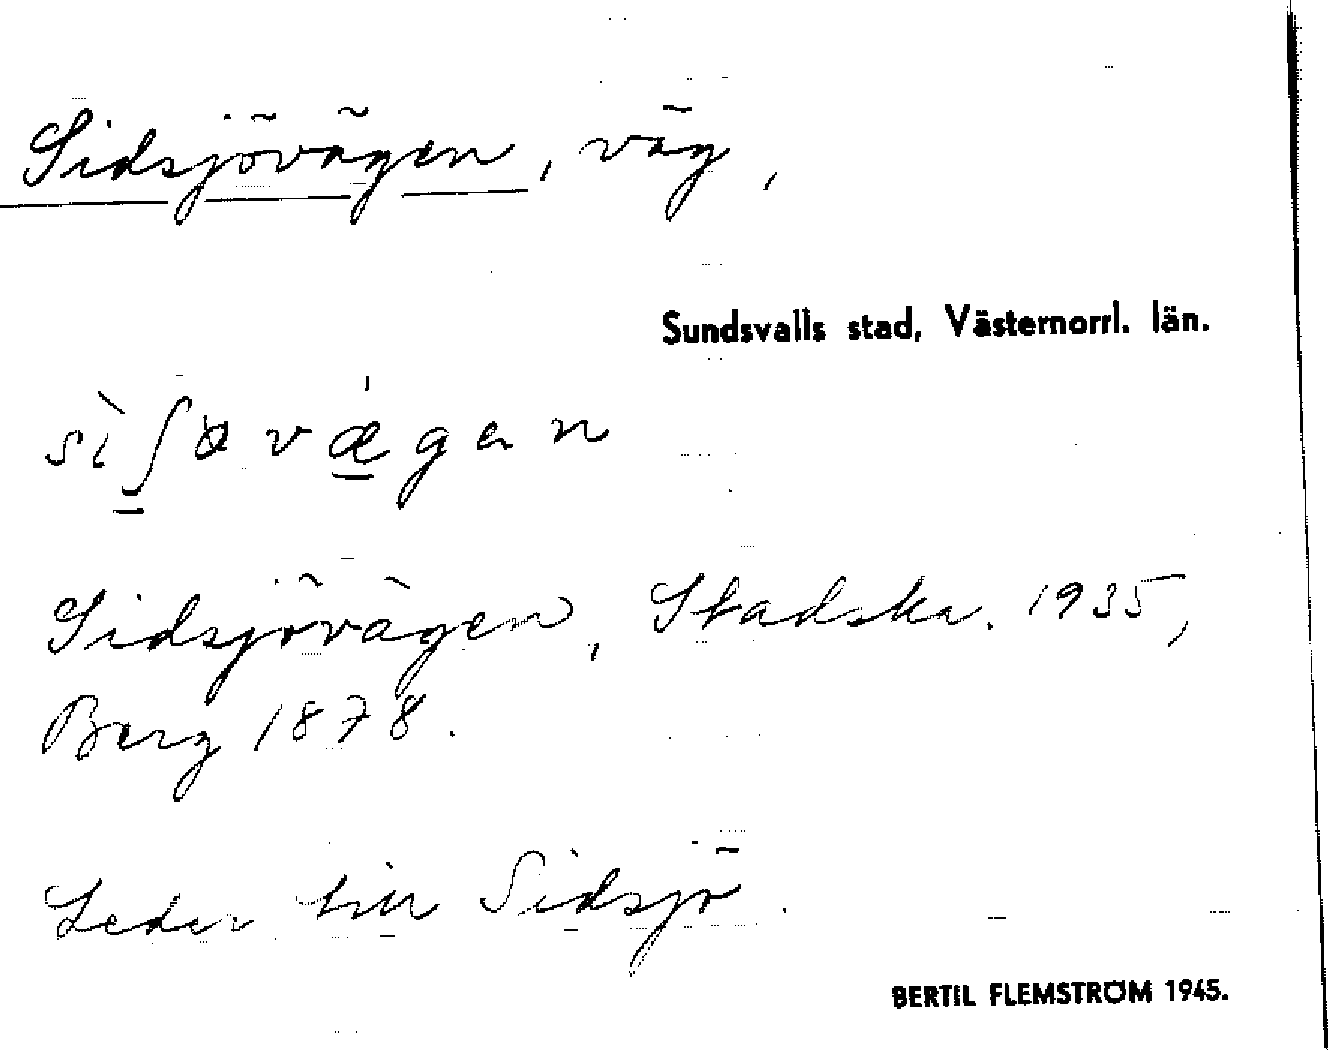 Sidsjövägen, väg,
Sundsvalls stad, Västernorrl. län.
Sidsjövägen, Stadska. 1935,
Berg 1878.
Leder till Sidsjö.
BERTIL FLEMSTRÖM 1945.